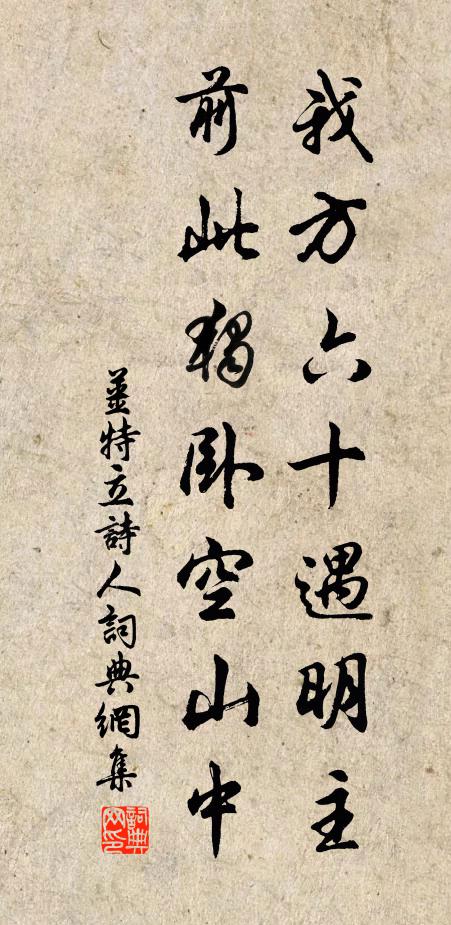 我方六十遇明主
前此獨卧空山中
姜特立詩人詞典網集
詞典網印